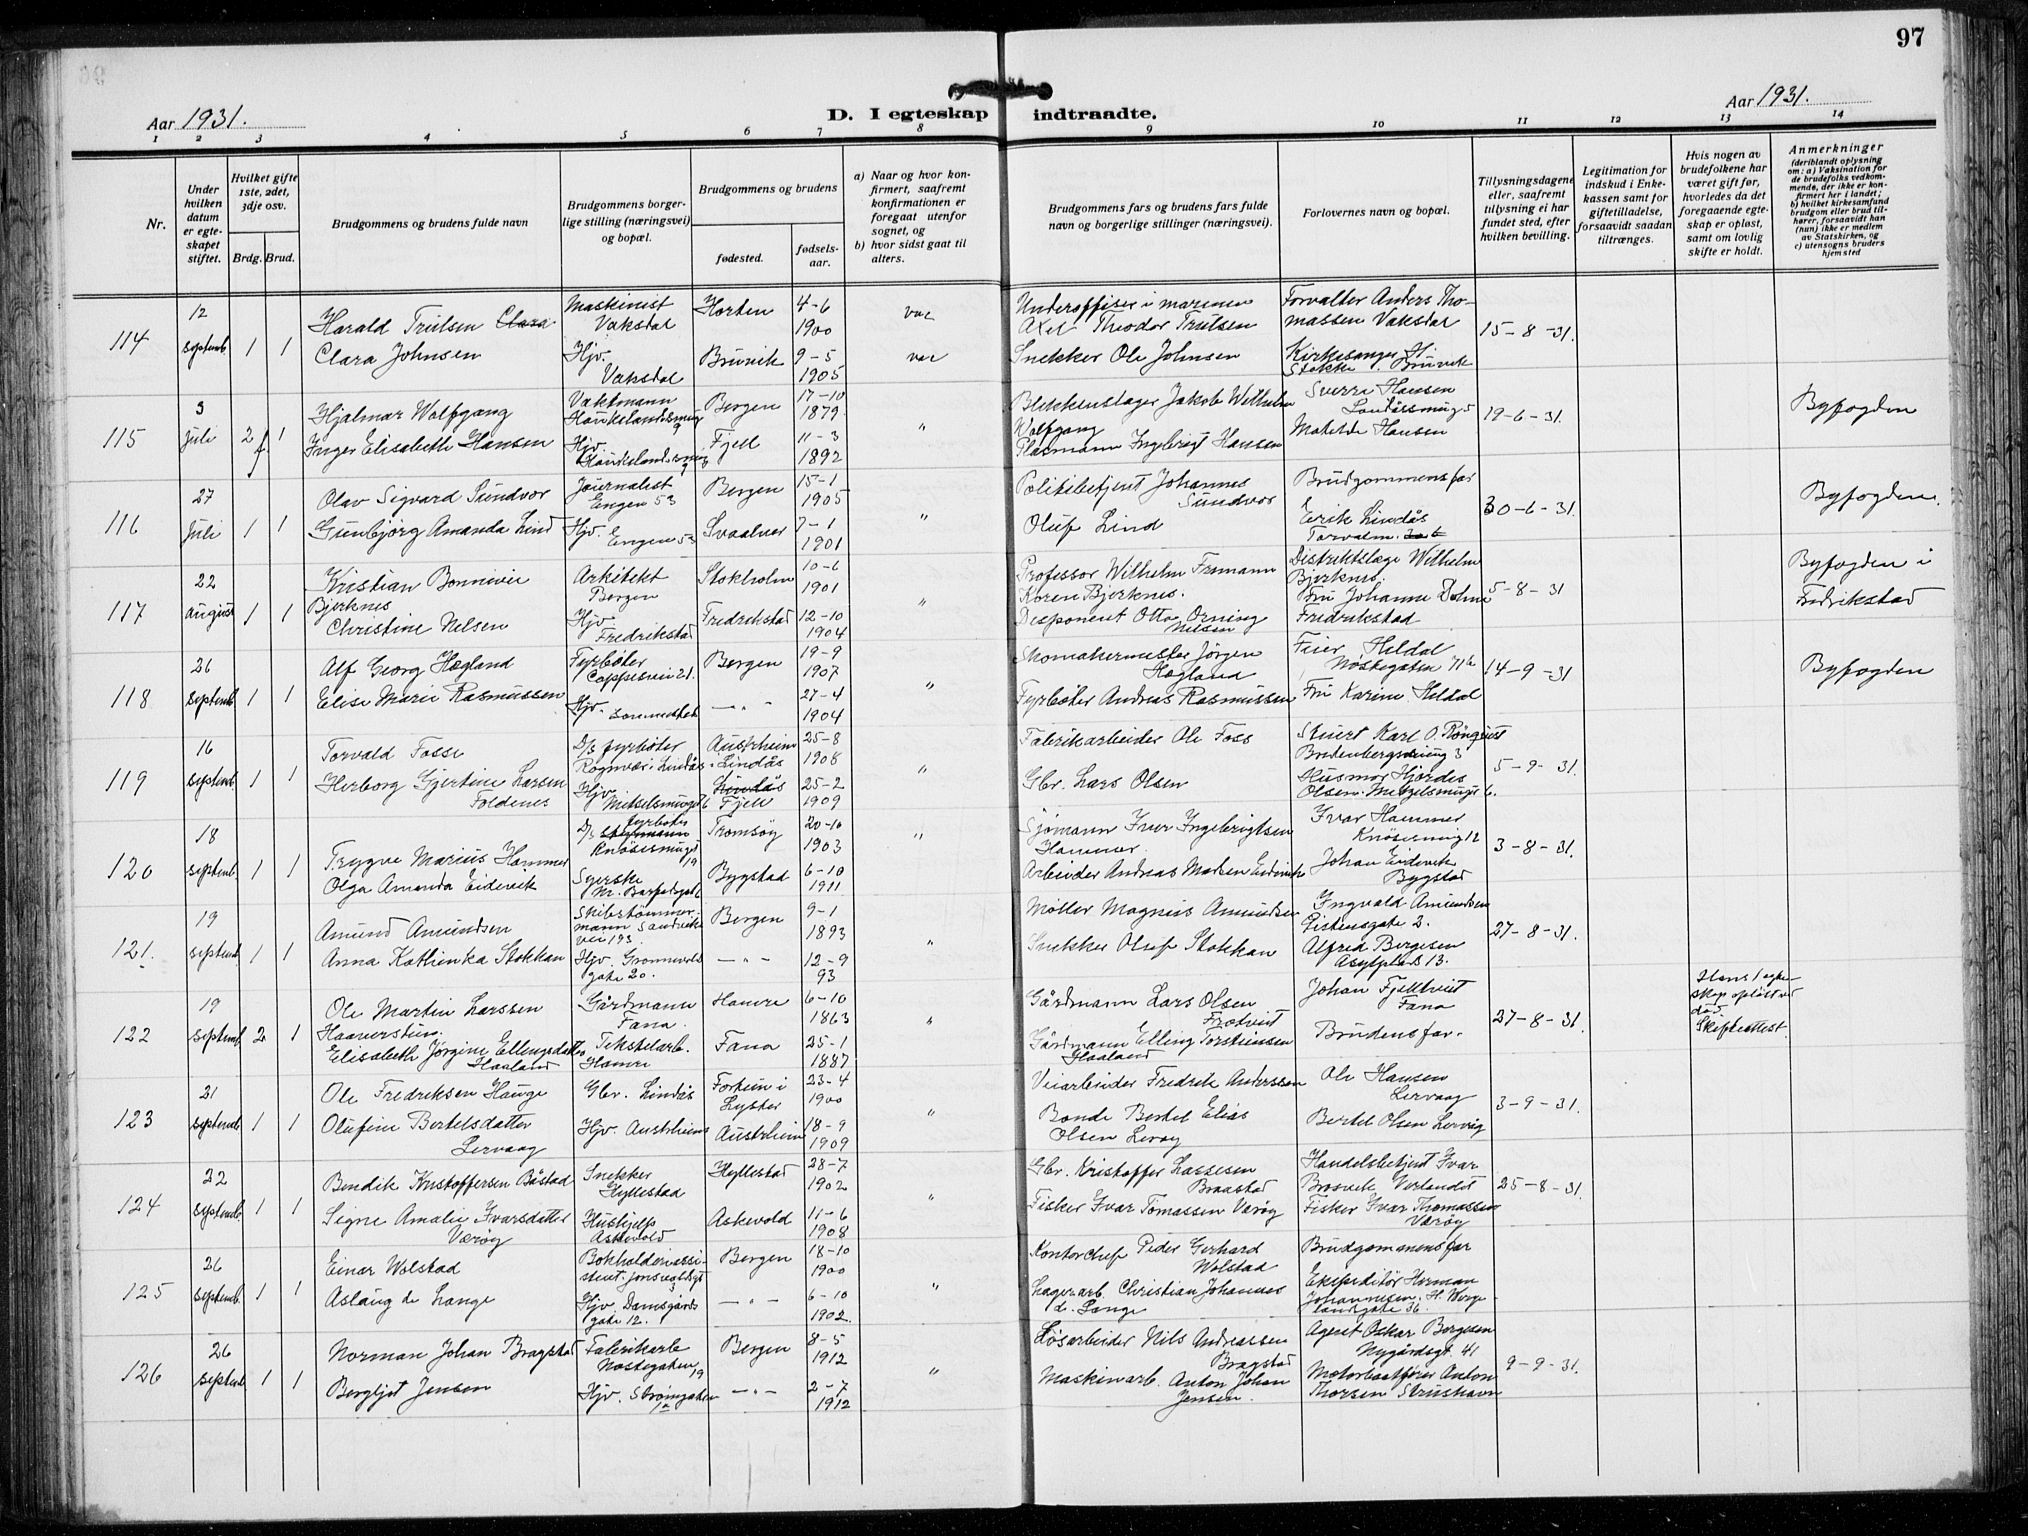 97
Aar 1931.
D. I egteskap indtraadte.
Aar 1931.
1 2 3 4 5 6 7 8 9 10 11 12 13 14
Nr.
Under hvilken datum er egte-skapet stiftet.
Hvilket gifte 1ste, 2det, 3dje osv.
Brdg. Brud.
Brudgommens og brudens fulde navn
Brudgommens borger-lige stilling (næringsvei) og bopæl.
Brudgommens og brudens
fødested.
fødsels-aar.
a) Naar og hvor kon-firmert, saafremt konfirmationen er foregaat utenfor sognet, og
b) hvor sidst gaat til alters.
Brudgommens fars og brudens fars fulde navn og borgerlige stillinger (næringsvei).
Forlovernes navn og bopæl.
Tillysningsdagene eller, saafremt tillysning ei har fundet sted, efter hvilken bevilling.
Legitimation for indskud i Enke-kassen samt for giftetilladelse, forsaavidt saadan tiltrænges.
Hvis nogen av brudefolkene har været gift før, hvorledes da det foregaaende egte-skap er opløst, samt om lovlig skifte er holdt.
Anmerkninger
(deriblandt oplysning om: a) Vaksination for de brudefolks vedkom-mende, der ikke er kon-firmert her i landet; b) hvilket kirkesamfund brudgom eller brud til-hører, forsaavidt han (hun) ikke er medlem av Statskirken, og c) utensogns bruders hjemsted
114 12 septemb. 1 1
Harald Trulsen Clara Maskinist Vaksdal Horten 4-6 1900 vac Underoffiser i marinen Axel Theodor Trulsen Forvalter Anders Thomassen Vaksdal 15-8-31.
Clara Johnsen Hjv. Vaksdal Bruvik 9-5 1905 vac Snekker Ole Johnsen Kirkesanger H. Stokke, Bruvik
115 3 Juli 2 f. 1
Hjalmar Wolfgang Vaktmann Bergen 17-10 1879 " Blikkenslager Jakob Wilhelm Wolfgang Sverre Hansen 19-6-31. Byfogden
Inger Elisabeth Hansen Hjv. Fjell 11-3 1892 Ingebrigt Hansen Matilde Hansen
116 27 Juli 1 1
Olav Sigvard Sundvor Journalist Engen 53 Bergen 15-1 1905 " Politibetjent Johannes Sundvor Brudgommens far 30-6-31. Byfogden.
Gunbjörg Amanda Lind Hjv. Engen 53 Svolvær 7-1 1901 Oluf Lind Erik Lindås
117 22 August 1 1
Kristian Bonnevie Bjerknes Arkitekt Bergen Stokholm 10-6 1901 " Professor Wilhelm Frimann Koren Bjerknes. Distriktslæge Wilhelm Bjerknes. 5-8-31 Byfogden i Fredrikstad
Christine Nilsen Hjv. Fredrikstad Fredrikstad 12-10 1904 Disponent Otto Orning Nilsen Fru Johanne Dolme Fredrikstad
118 26 septemb. 1 1
Alf Georg Hægland Fyrbøter Bergen 19-9 1907 " Skomakermester Jörgen Hægland Feier Hildal Nöstegaten 71b 14-9-31 Byfogden
Elise Marie Rasmussen Hjv. sammesteds — " — 27-4 1904 Fyrbøter Andreas Rasmussen Fru Karine Hildal
119 16 septemb. 1 1
Torvald Fosse D/s fyrbøter Austrheim i Lindås 25-8 1908 " Fabrikarbeider Ole Foss Stuert Karl O. Rönquist 5-9-31.
Herborg Gjertine Larsen Foldenes Hjv. Lindås Fjell 25-2 1909 Gbr. Lars Olsen Husmor Hjördis Olsen.
120 18 septemb. 1 1
Trygve Marius Hammer D/s fyrbøter styrmann Tromsöy 20-10 1903 " Sjömann Ivar Ingebrigtsen Hammer. Ivar Hammer 3-8-31.
Olga Amanda Eidevik Syerske Bygstad 6-10 1911 Arbeider Andreas Madsen Eidevik Johan Eidevik Bygstad
121. 19 septemb. 1 1
Amund Amundsen Skibstömmermann Sandviksvei 193 Bergen 9-1 1893 " Møller Magnus Amundsen Ingvald Amundsen 27-8-31.
Anna Kathinka Stokkan Hjv. gate 20. — " — 12-9 93 Snekker Oluf Stokkan Alfred Bergesen Asylplass 13.
122 19 septemb. 2. 1
Ole Martin Larssen Gårdmann Fana. Hamre 6-10 1863 " Gårdmann Lars Olsen Johan Fjellkvist Fana 27-8-31. Hans 1 egteskap opløst ved död. Skifteattest.
Elisabeth Jörgine Ellingsdatter Haaland Tekstilarb. Hamre Fana 25-1 1887 Gårdmann Elling Torsteinsen Haaland Brudens far.
123 21 septemb. 1 1
Ole Fredriksen Hauge Gbr. Lindås i Lyster 23-4 1900 " Veiarbeider Fredrik Anderssen Ole Hansen Lervaag 3-9-31.
Olufine Bertelsdatter Lervaag Hjv. Austrheim Austrheim 18-9 1909 Bonde Bertel Elias Olsen Bertel Olsen
124 22 septemb. 1 1
Bendik Kristoffersen Båstad Snekker Hyllestad Hyllestad 28-7 1902 " Gbr. Kristoffer Lassesen Handelsbetjent Ivar 25-8-31.
Signe Amalie Ivarsdatter Værøy Hushjelp Askevold Askevold 11-6 1908 Fisker Ivar Tomassen Værøy Fisker Ivar Thomassen Værøy
125 26 septemb. 1 1
Einar Wolstad Bergen 18-10 1900 " Kontorchef Peder Gerhard Wolstad Brudgommens far
Aslaug de Lange Hjv. Damsgårdsgate 12. — " — 6-10 1902. Lagerarb. Christian Johannes d. Lange Ekspeditör Herman Johannesen. H. Wergelandsgate 36.
126 26 septemb 1 1
Norman Johan Bragstad Fabrikarb. Nöstegaten 19 Bergen 8-5 1912 " Løsarbeider Nils Andreassen Bragstad Agent Oskar Bergesen Nygårdsgt. 41 9-9-31.
Bergljot Jensen Hjv. Strömgaten — " — 2-7 1912 Maskinarb. Anton Johan Jensen. Motorbaatfører Anton Thorsen Strushavn